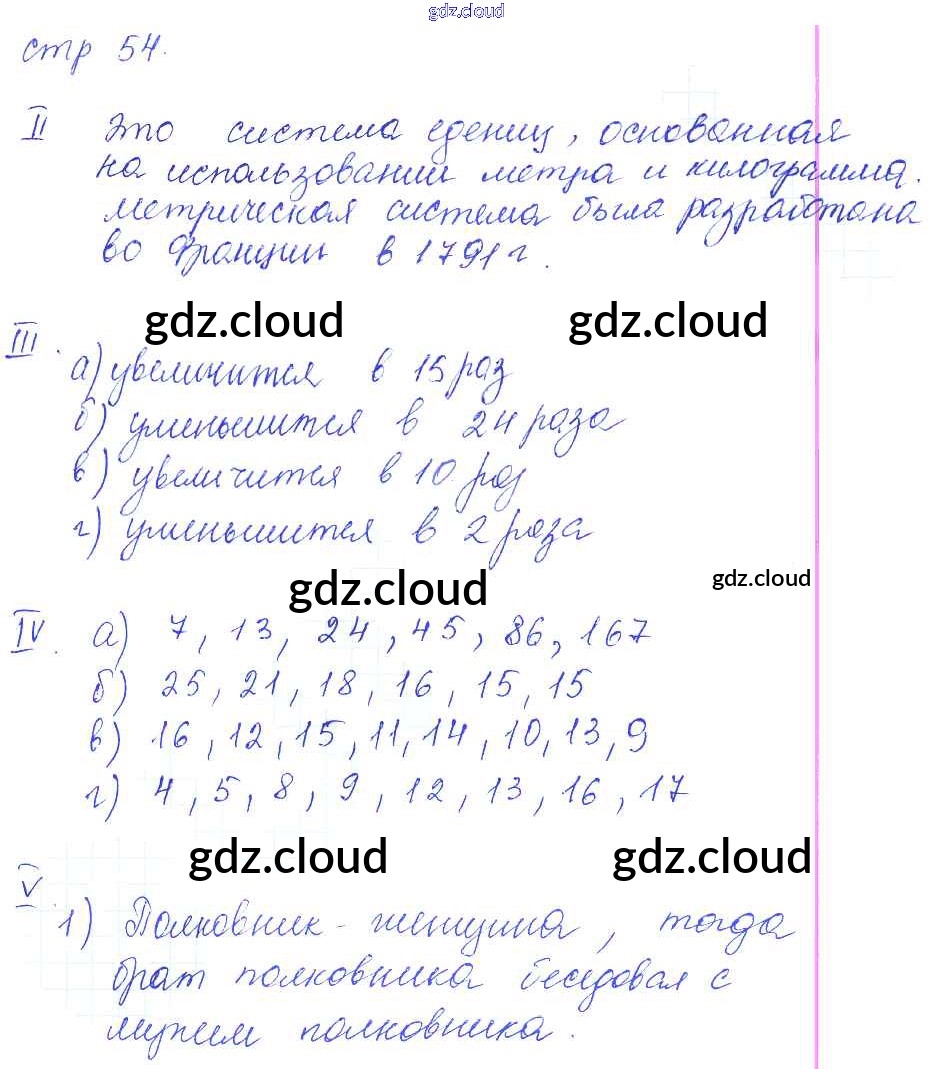 gdz.cloud
стр 54.
II Это система едениц, основанная
на использовании метра и килограмма.
Метрическая система была разработана
во Франции в 1791 г.
gdz.cloud gdz.cloud
III.
а) увеличится в 15 раз
б) уменьшится в 24 раза
в) увеличится в 10 раз
г) уменьшится в 2 раза
gdz.cloud gdz.cloud
IV. а) 7, 13, 24, 45, 86, 167
б) 25, 21, 18, 16, 15, 15
в) 16, 12, 15, 11, 14, 10, 13, 9
г) 4, 5, 8, 9, 12, 13, 16, 17
gdz.cloud gdz.cloud
V
1) Полковник - женщина, тогда
брат полковника беседовал с
мужем полковника.